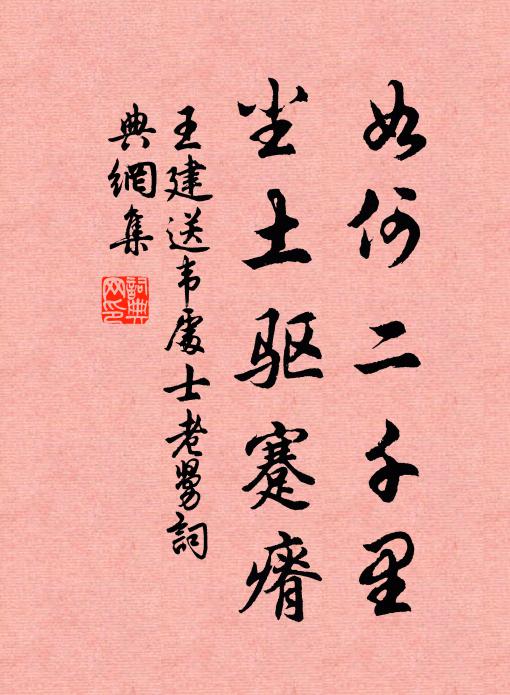 如何二千里
尘土驱蹇瘠
王建送韦处士老舅词
典網集
詞典
网印